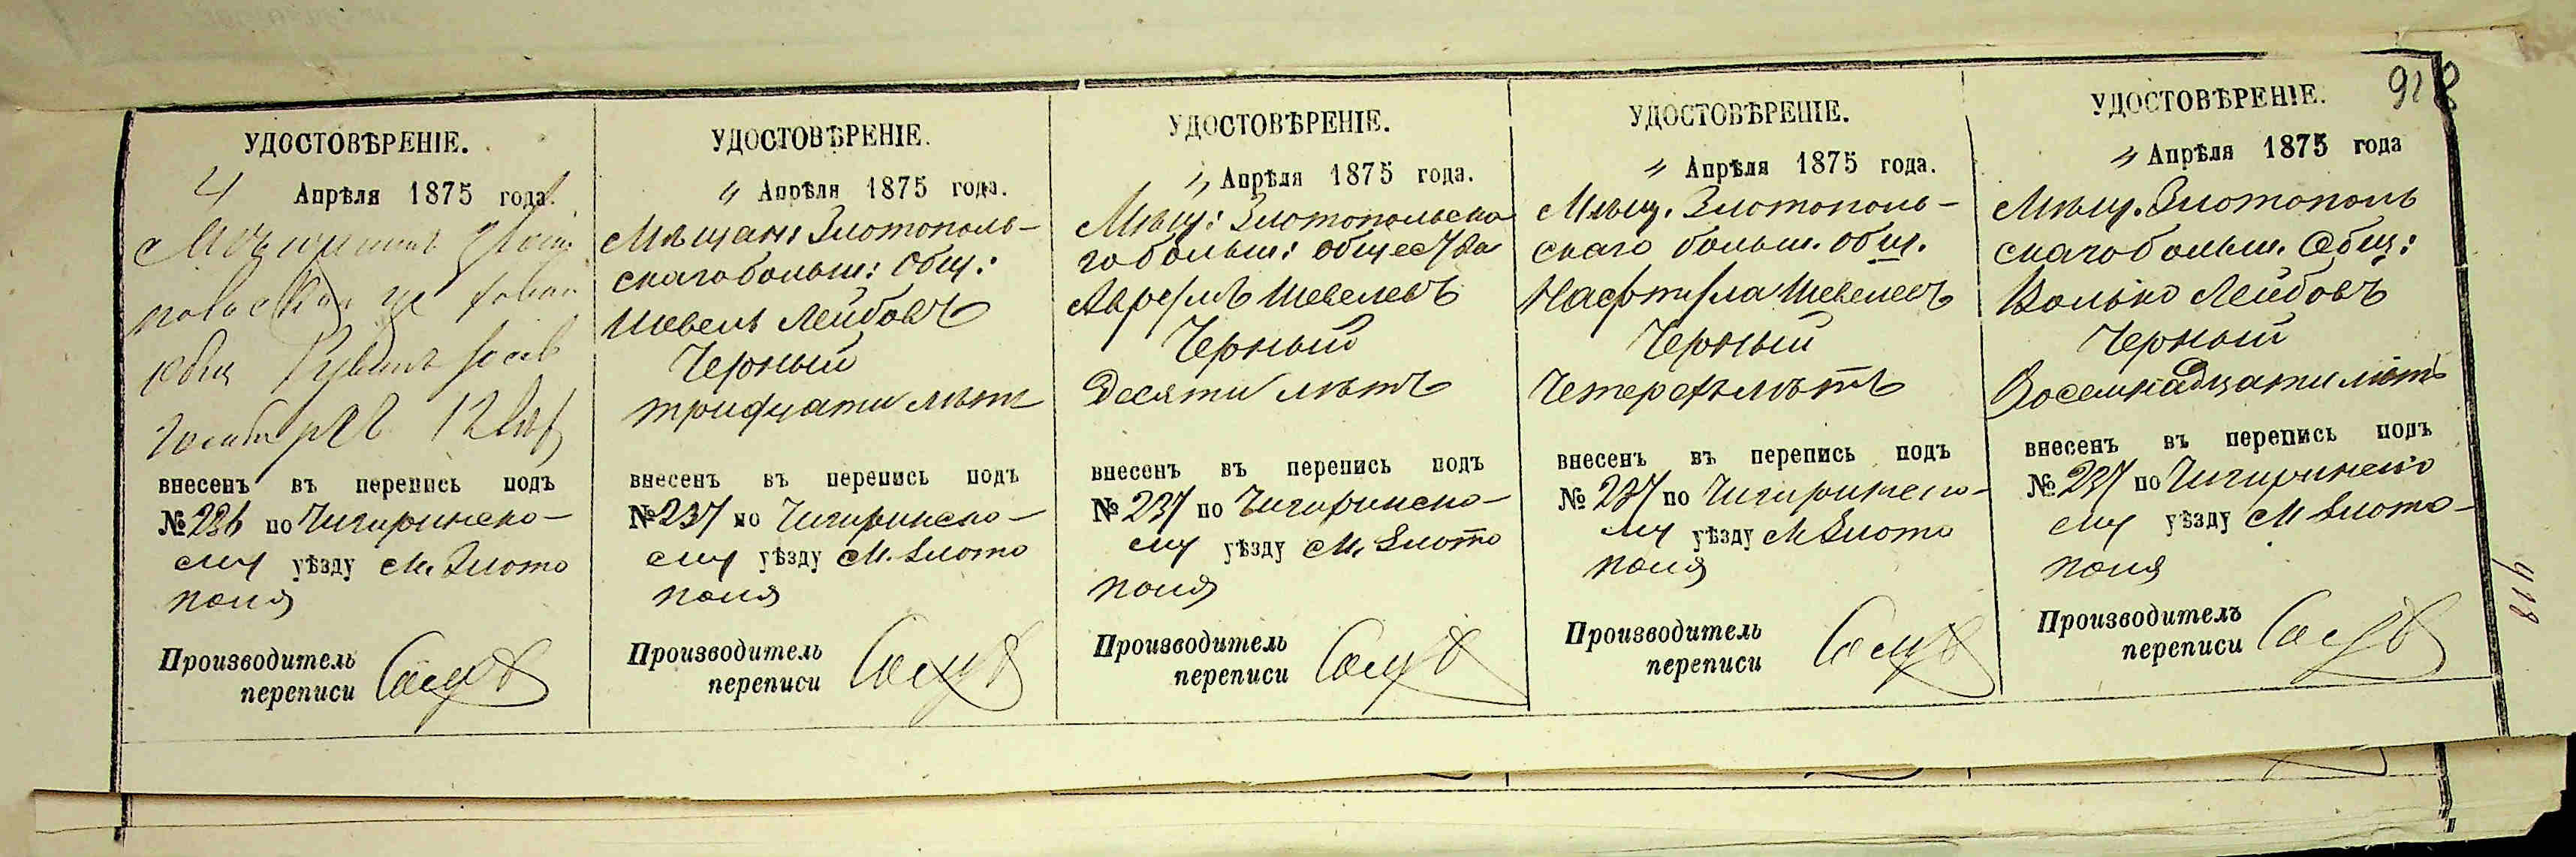 928
УДОСТОВѢРЕНІЕ.
4 Апрѣля 1875 года.
Рувинъ
12 лѣт
внесенъ въ перепись подъ
№ 236 по Чигиринско-
му уѣзду М. Злото
поля
Производитель
переписи
УДОСТОВѢРЕНІЕ.
" Апрѣля 1875 года.
Мѣщан: Злотополь-
скаго больш: Общ:
Шевель Лейбовъ
Черный
тридцати лѣтъ
внесенъ въ перепись подъ
№ 237 по Чигиринско-
му уѣзду М. Злото
поля
Производитель
переписи
УДОСТОВѢРЕНІЕ.
" Апрѣля 1875 года.
Мѣщ: Злотопольска
го больш: общества
Шевелевъ
Черный
Десяти лѣтъ
внесенъ въ перепись подъ
№ 237 по Чигиринско-
му уѣзду М. Злото
поля
Производитель
переписи
УДОСТОВѢРЕНІЕ.
" Апрѣля 1875 года.
Мѣщ. Злотополь-
скаго больш. общ.
Нафтула Шевелевъ
Черный
Четерехъ лѣтъ
внесенъ въ перепись подъ
№ 237 по Чигиринско-
му уѣзду М Злото
поля
Производитель
переписи
УДОСТОВѢРЕНІЕ.
" Апрѣля 1875 года
Мѣщ. Злотополь
скаго больш. Общ:
Волько Лейбовъ
Черный
Восемнадцати лѣтъ
внесенъ въ перепись подъ
№ 237 по Чигиринско
му уѣзду М Злото-
поля
Производитель
переписи